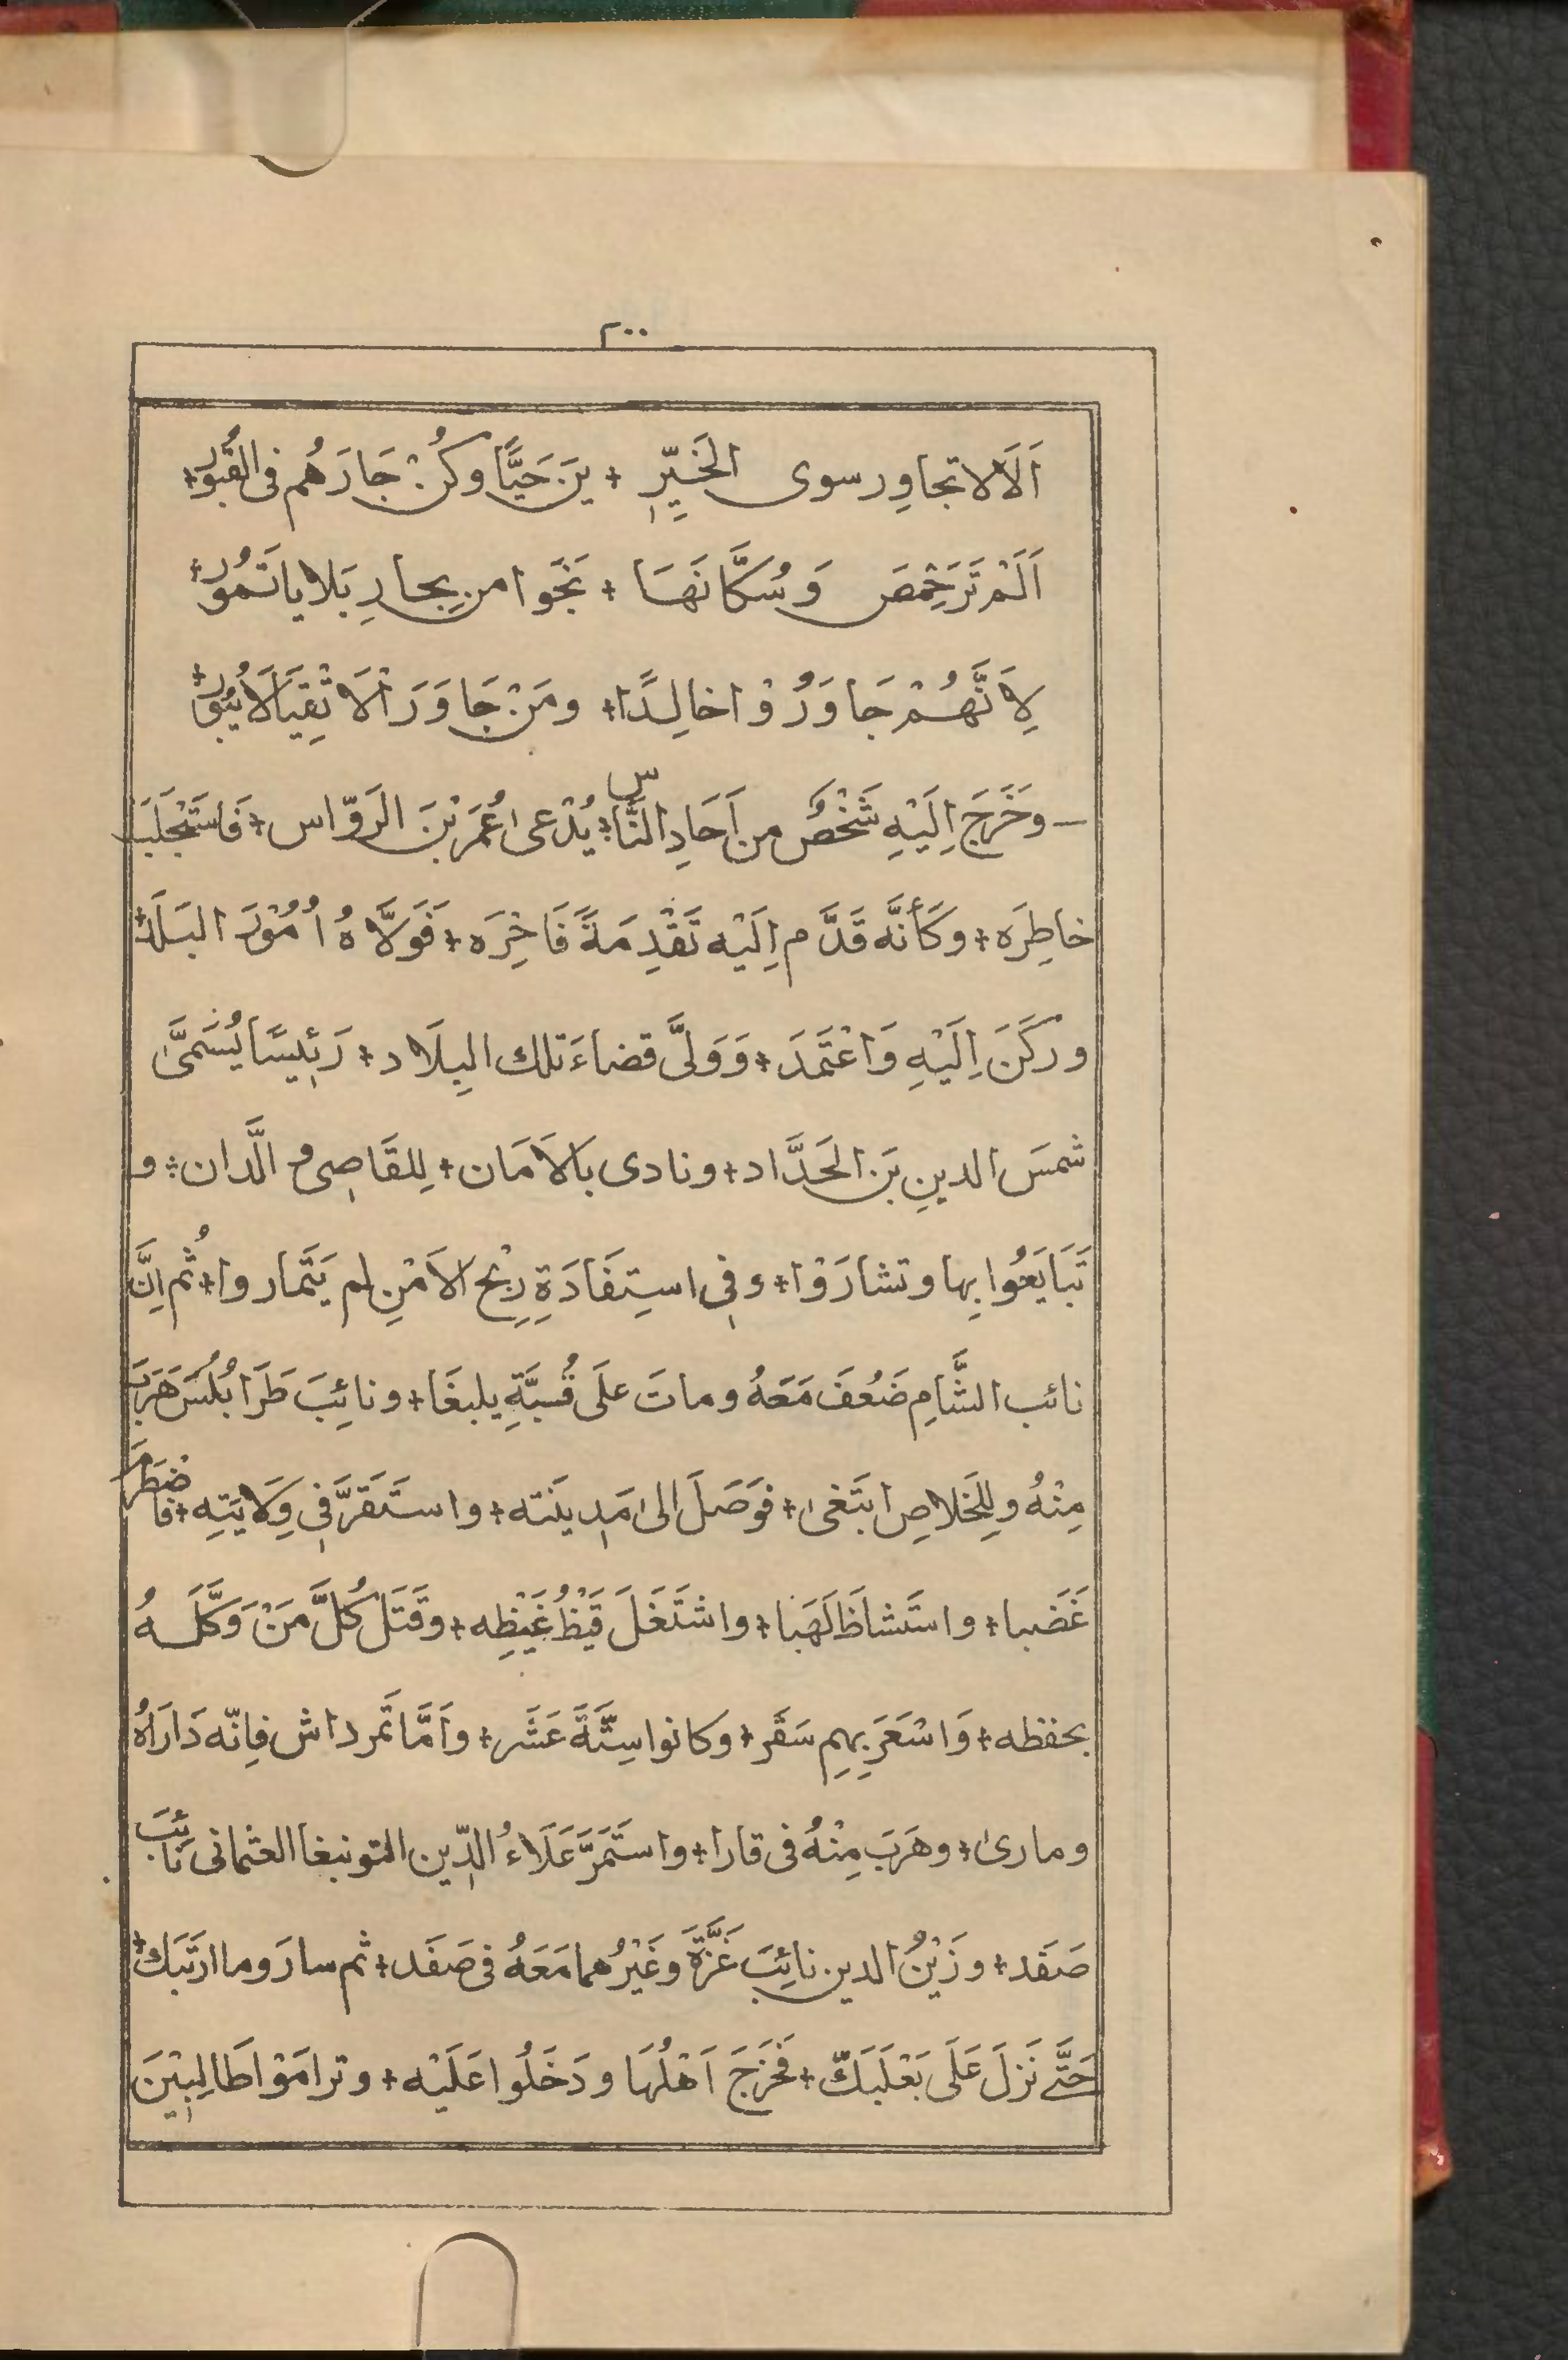 ٢٠٠
اَلَا لا تجاوِر سوى الخَيِّرِ + يَنَ حَيًّا وكُنْ جَارَهُم فى القُبُوْر +
اَلَمْ تَرَ حِمْصَ وَسُكَّانَهَا + نَجَوا من بِحارِ بَلايا تَمُورُ +
لِاَنَّهُمْ جَاوَرُوْا خالِدًا + ومَنْ جَاوَرَ اْلاَتْقِيَا لَا يَبُوْر +
— وخَرَجَ اِلَيْهِ شَخْصٌ من اَحَادِ النَّاس + يُدْعىٰ عُمَرَ بْنَ الرَوّاس + فَاسْتَجْلَبَ
خاطِرَه + وكَأنَّه قَدَّم اِلَيْه تَقْدِمَةً فَاخِرَه + فَوَلَّاهُ اُمُوْرَ البَلَد +
وركَنَ اِلَيْهِ وَاعْتَمَدَ + وَوَلَّى قضاءَ تلك البِلَاد + رَئِيسًا يُسَمَّىٰ
شمسَ الدينِ بَن الحَدَّاد + ونادى بالاَمَان + لِلقَاصِى و الَّدان + و
تَبَايَعُوا بِها وتشارَوْا + وفِى استِفَادَةِ رِبْح الاَمْنِ لم يَتَمار وا + ثُم اِنَّ
نائب الشَّامِ ضَعُفَ مَعَهُ وماتَ علَى قُبَّةِ يلبغَا + ونائِبَ طَرَابُلُسَ هَرَبَ
مِنْهُ ولِلخَلاصِ ابتَغىٰ + فوَصَلَ الىٰ مَدِينَته + واستَقَرَّ فِى وِلَايَتِه + فاضْطَرَمَ
غَضَبا + واستَشاظَ لَهَبا + واشتَغَلَ قَيْظُ غَيْظِه + وقَتَلَ كُلَّ مَنْ وَكَّلَهُ
بحفظه + وَاسْعَرَ بِهِم سَقَر + وكانوا سِتَّةَ عَشَر + واَمَّا تَمرداش فاِنّه دَارَاهُ
ومارىٰ + وهَرَبَ مِنْهُ فى قارا + واستَمَرَّ عَلَاءُ الدِّين التونبغا العثمانى نائِبَ
صَفَد + وزَيْنُ الدين نائِبَ غَزَّةَ وغَيْرُهما مَعَهُ فى صَفَد + ثم سارَ وما ارتَبَك +
حَتَّى نَزلَ عَلَى بَعْلَبَكّ + فخَرَجَ اَهْلُهَا ودَخَلُوا عَلَيْه + وترامَوْا طَالِبِيْنَ